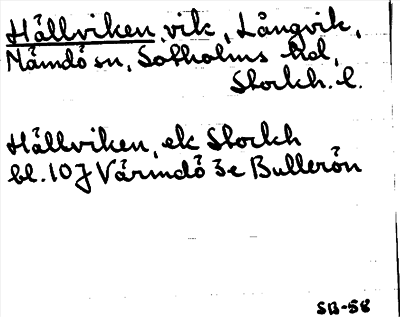 Hällviken, vik, Långvik,
Nämdö sn, Sotholms hd,
Stockh. l.
Hällviken, ek Stockh
bl. 10 J Värmdö 3e Bullerön
SB-58